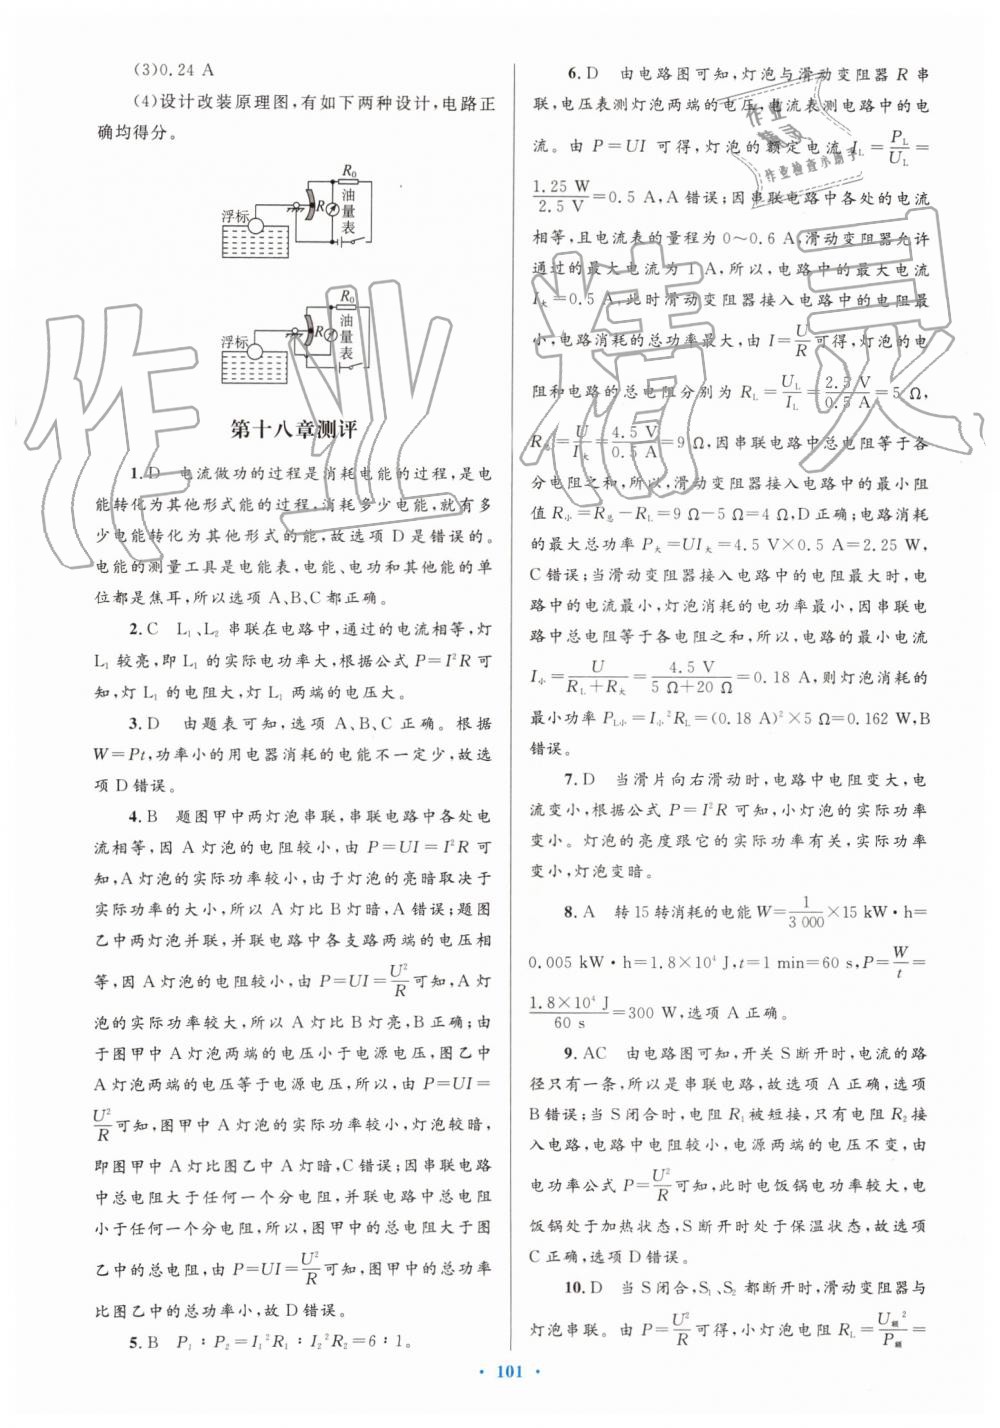 (3)0.24 A
(4)设计改装原理图,有如下两种设计,电路正
确均得分。
R₀
浮标
R
油
量
表
R₀
浮标
R
油
量
表
第十八章测评
1.D 电流做功的过程是消耗电能的过程,是电
能转化为其他形式能的过程,消耗多少电能,就有多
少电能转化为其他形式的能,故选项 D 是错误的。
电能的测量工具是电能表,电能、电功和其他能的单
位都是焦耳,所以选项 A、B、C 都正确。
2.C L₁、L₂ 串联在电路中,通过的电流相等,灯
L₁ 较亮,即 L₁ 的实际电功率大,根据公式 P=I²R 可
知,灯 L₁ 的电阻大,灯 L₁ 两端的电压大。
3.D 由题表可知,选项 A、B、C 正确。根据
W=Pt,功率小的用电器消耗的电能不一定少,故选
项 D 错误。
4.B 题图甲中两灯泡串联,串联电路中各处电
流相等,因 A 灯泡的电阻较小,由 P=UI=I²R 可
知,A 灯泡的实际功率较小,由于灯泡的亮暗取决于
实际功率的大小,所以 A 灯比 B 灯暗,A 错误;题图
乙中两灯泡并联,并联电路中各支路两端的电压相
等,因 A 灯泡的电阻较小,由 P=UI=U²/R 可知,A 灯
泡的实际功率较大,所以 A 灯比 B 灯亮,B 正确;由
于图甲中 A 灯泡两端的电压小于电源电压,图乙中
A 灯泡两端的电压等于电源电压,所以,由 P=UI=
U²/R 可知,图甲中 A 灯泡的实际功率较小,灯泡较暗,
即图甲中 A 灯比图乙中 A 灯暗,C 错误;因串联电路
中总电阻大于任何一个分电阻,并联电路中总电阻
小于任何一个分电阻,所以,图甲中的总电阻大于图
乙中的总电阻,由 P=UI=U²/R 可知,图甲中的总功率
比图乙中的总功率小,故 D 错误。
5.B P₁∶P₂=I₁²R₁∶I₂²R₂=6∶1。
6.D 由电路图可知,灯泡与滑动变阻器 R 串
联,电压表测灯泡两端的电压,电流表测电路中的电
流。由 P=UI 可得,灯泡的额定电流 I_L=P_L/U_L=
1.25 W/2.5 V=0.5 A,A 错误;因串联电路中各处的电流
相等,且电流表的量程为 0～0.6 A,滑动变阻器允许
通过的最大电流为 1 A,所以,电路中的最大电流
I大=0.5 A,此时滑动变阻器接入电路中的电阻最
小,电路消耗的总功率最大,由 I=U/R 可得,灯泡的电
阻和电路的总电阻分别为 R_L=U_L/I_L=2.5 V/0.5 A=5 Ω,
R总=U/I大=4.5 V/0.5 A=9 Ω,因串联电路中总电阻等于各
分电阻之和,所以,滑动变阻器接入电路中的最小阻
值 R小=R总－R_L=9 Ω－5 Ω=4 Ω,D 正确;电路消耗
的最大总功率 P大=UI大=4.5 V×0.5 A=2.25 W,
C 错误;当滑动变阻器接入电路中的电阻最大时,电
路中的电流最小,灯泡消耗的电功率最小,因串联电
路中总电阻等于各分电阻之和,所以,电路的最小电流
I小=U/(R_L+R大)=4.5 V/(5 Ω+20 Ω)=0.18 A,则灯泡消耗的
最小功率 P_L小=I小²R_L=(0.18 A)²×5 Ω=0.162 W,B
错误。
7.D 当滑片向右滑动时,电路中电阻变大,电
流变小,根据公式 P=I²R 可知,小灯泡的实际功率
变小。灯泡的亮度跟它的实际功率有关,实际功率
变小,灯泡变暗。
8.A 转 15 转消耗的电能 W=1/3 000×15 kW·h=
0.005 kW·h=1.8×10⁴ J,t=1 min=60 s,P=W/t=
1.8×10⁴ J/60 s=300 W,选项 A 正确。
9.AC 由电路图可知,开关 S 断开时,电流的路
径只有一条,所以是串联电路,故选项 A 正确,选项
B 错误;当 S 闭合时,电阻 R₁ 被短接,只有电阻 R₂ 接
入电路,电路中电阻较小,电源两端的电压不变,由
电功率公式 P=U²/R 可知,此时电饭锅电功率较大,电
饭锅处于加热状态,S 断开时处于保温状态,故选项
C 正确,选项 D 错误。
10.D 当 S 闭合,S₁、S₂ 都断开时,滑动变阻器与
灯泡串联。由 P=U²/R 可得,小灯泡电阻 R_L=U额²/P额=
· 101 ·
作业
精灵
作业检查小助手
作业精灵